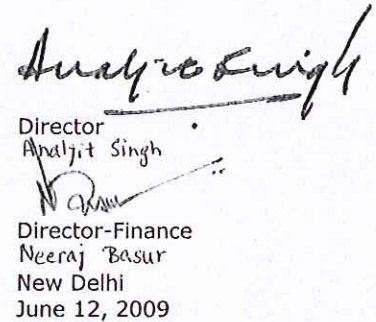 Analjit Singh
Director
Analjit Singh
Director-Finance
Neeraj Basur
New Delhi
June 12, 2009